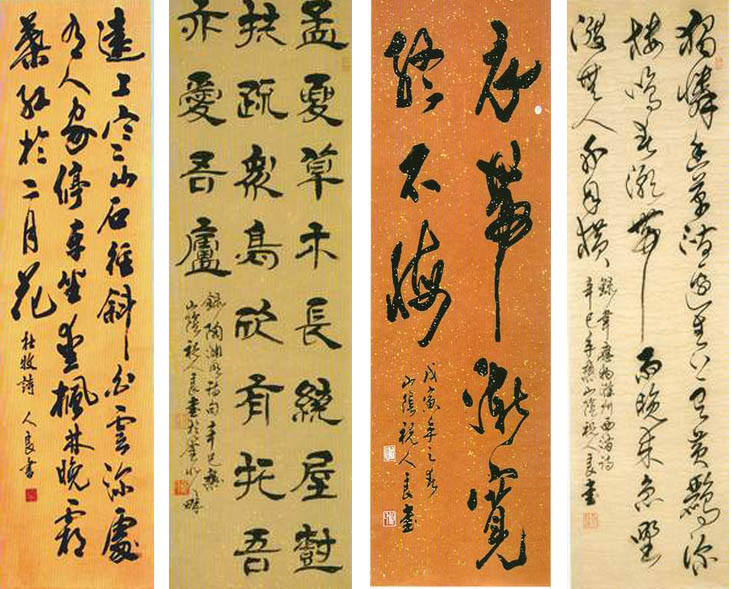 遠上寒山石徑斜白雲深處
有人家停車坐愛楓林晚霜
葉紅於二月花
杜牧詩 人良書
孟夏草木長繞屋樹
扶疏衆鳥欣有托吾
亦愛吾廬
錄陶淵明詩句辛巳
山陰祝人良書於
衣帶漸寬
終不悔
戊寅年之春
山陰祝人良書
獨憐幽草澗邊生上有黃鸝深
樹鳴春潮帶雨晚來急野
渡無人舟自橫
錄韋應物滁州西澗詩
辛巳年山陰祝人良書